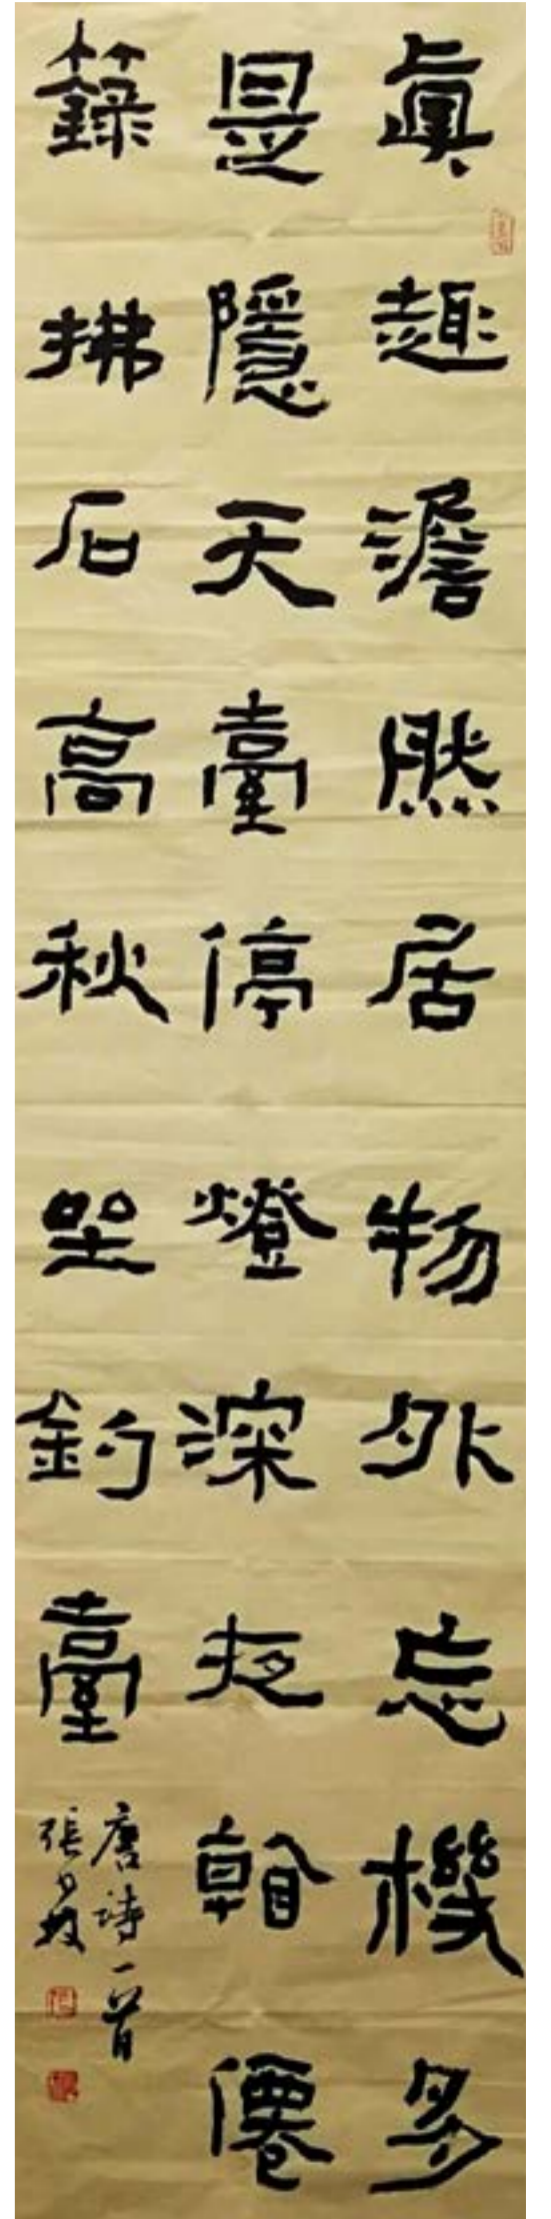 眞趣澹然居物外忘機多
是隱天臺停燈深夜看僊
籙拂石高秋坐釣臺
唐詩一首
張